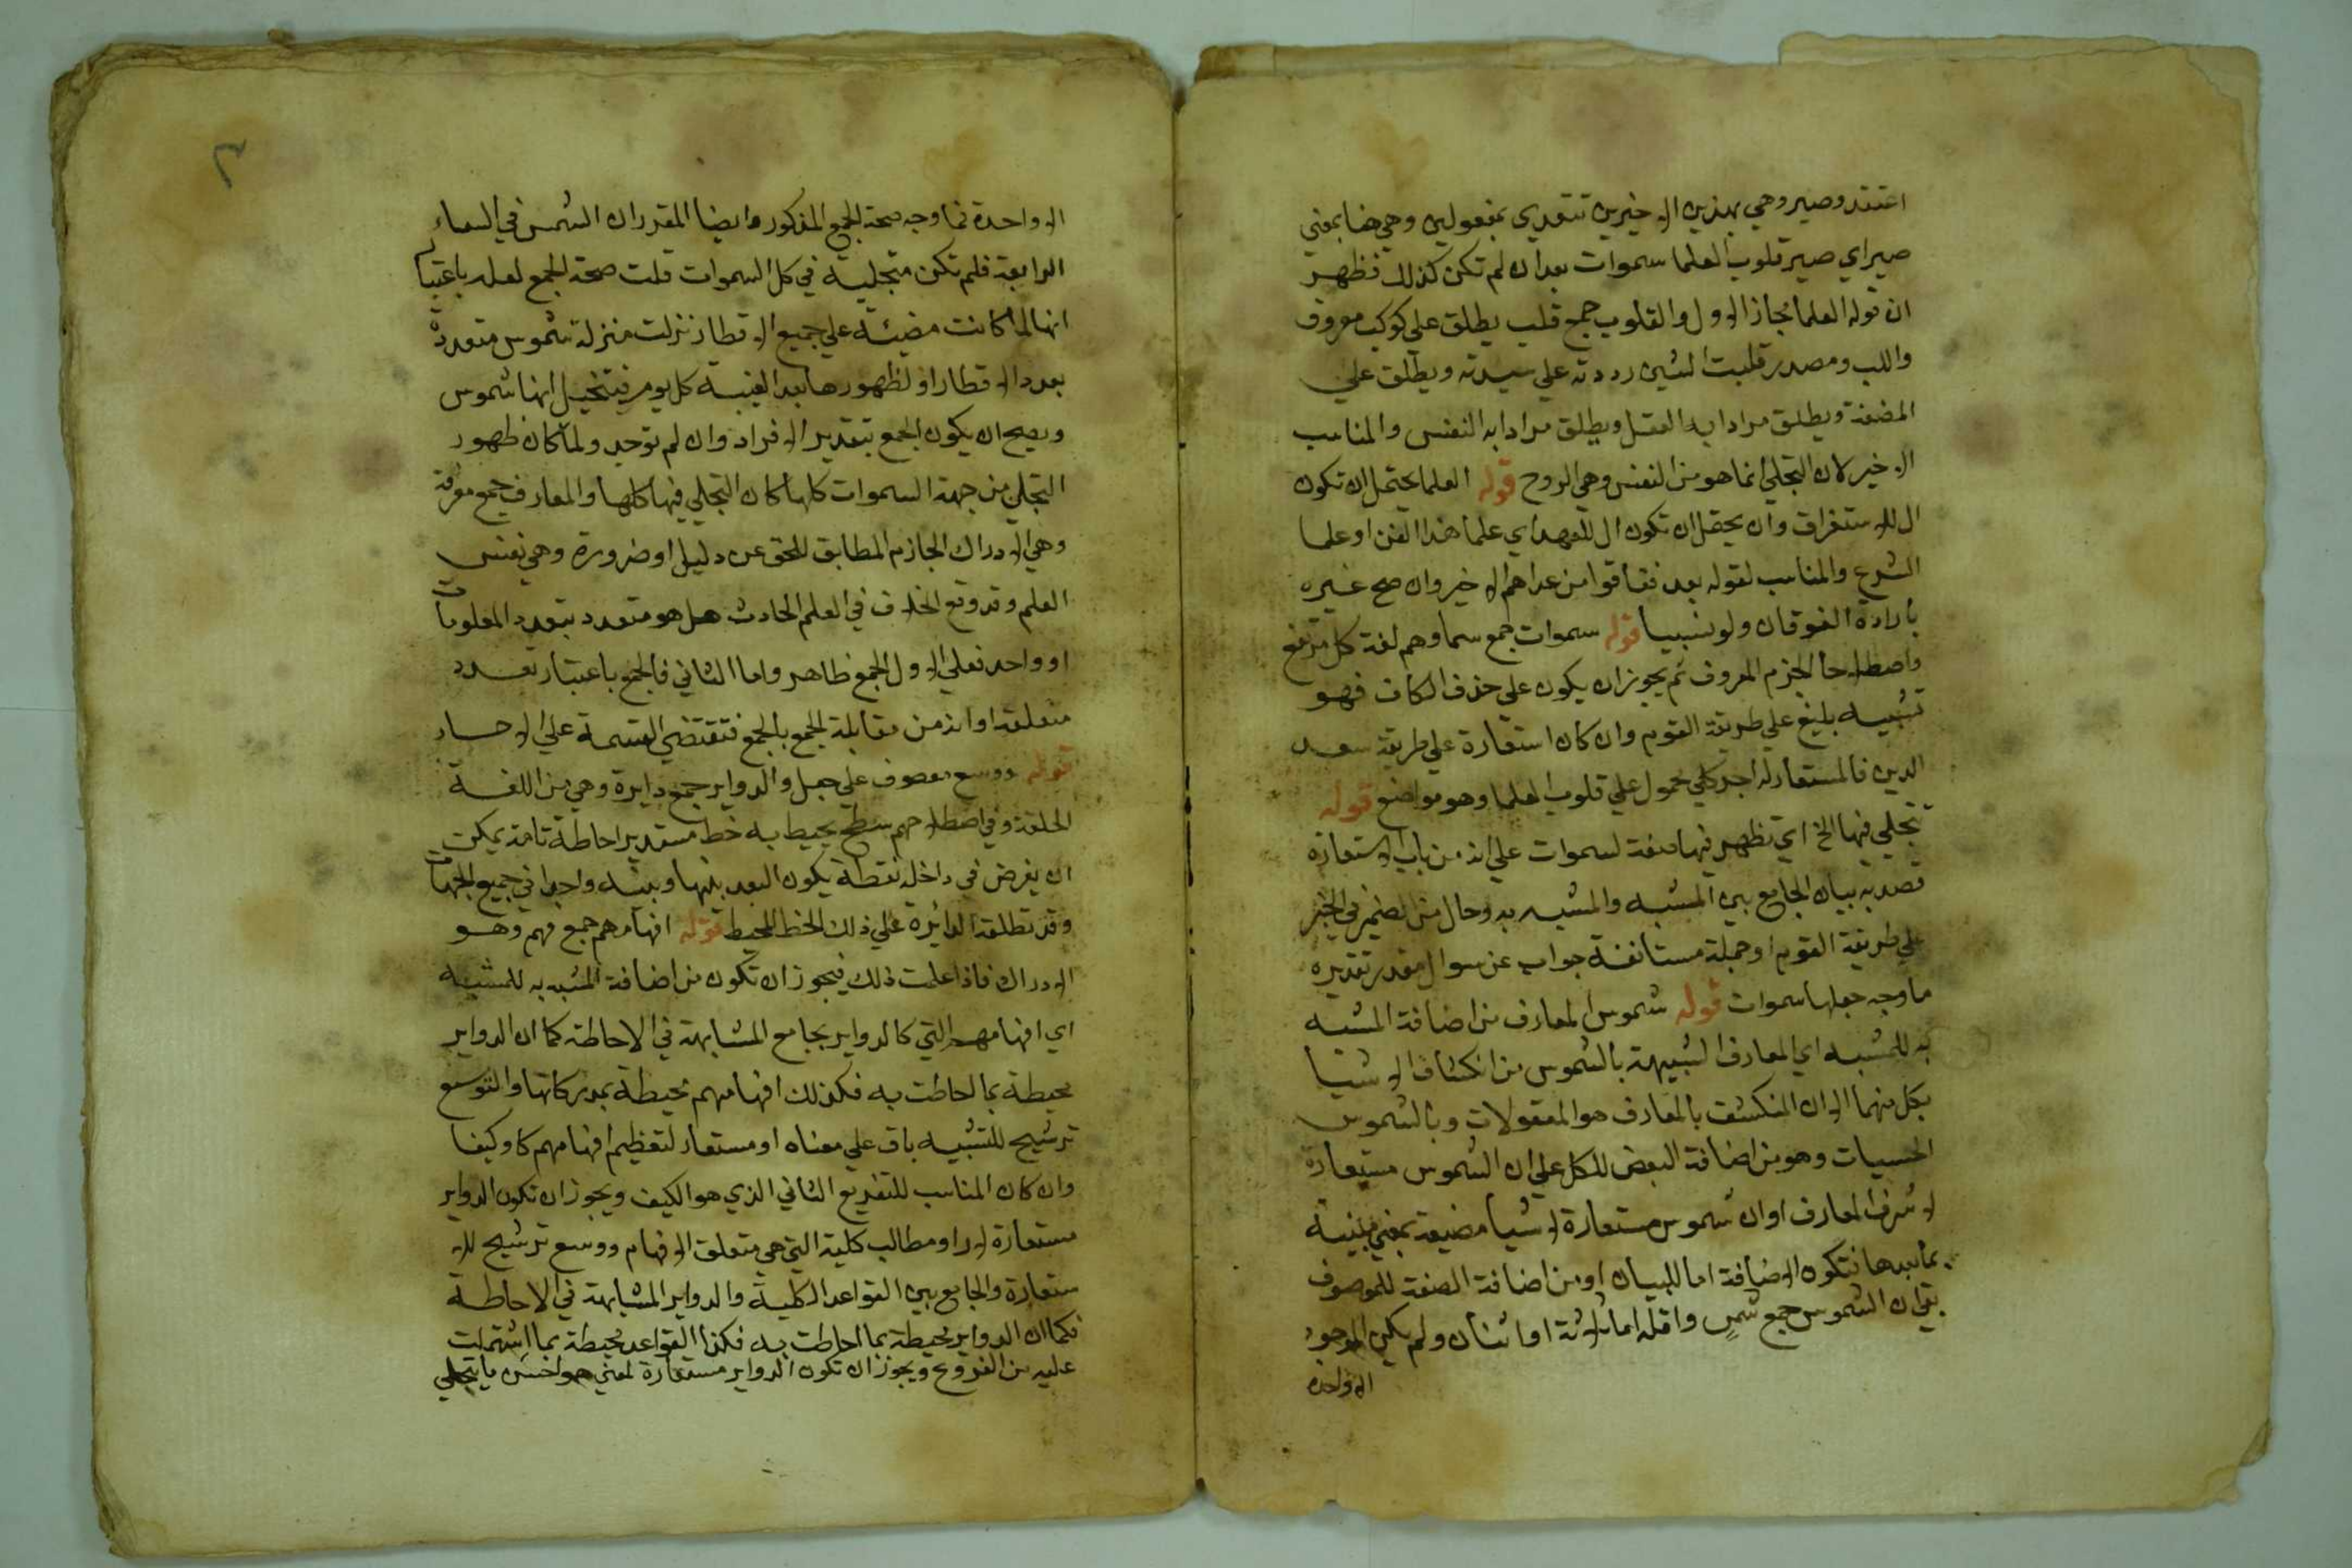 اعتقد وصير وهي بهذين الاخيرين تتعدي بمفعولين وهي هنا بمعني
صير اي صير قلوب العلما سموات بعد ان لم تكن كذلك فظهر
ان قوله العلما مجاز الاول والقلوب جمع قلب يطلق علي كوكب معروف
واللب ومصدر قلبت الشيئ رددته علي سيدته ويطلق علي
المضغة ويطلق مرادا به العقل ويطلق مرادا به النفس والمناسب
الاخير لان التجلي انما هو من النفس وهي الروح قوله العلما يحتمل ان تكون
ال للاستغراق وان يحتمل ان تكون ال للعهد اي علما هذا الفن او علما
الشرع والمناسب لقوله بعد ففاقوا من عداهم الاخير وان صح غيره
بارادة الفوقان ولو نسبيا قوله سموات جمع سما وهم لغة كل مرتفع
واصطلاحا الجزم المعروف ثم يجوز ان يكون علي حذف الكاف فهو
تشبيه بليغ علي طريقة القوم وان كان استعارة علي طريقة سعد
الدين فالمستعار له اجر كلي محمول علي قلوب العلما وهو مواضع قوله
تتجلي فيها الخ اي تظهر فيها صفة لسموات علي انه من باب الاستعارة
قصد به بيان الجامع بين المشبه والمشبه به وحال من الضمير في الخبر
علي طريقة القوم او جملة مستانفة جواب عن سوال مقدر تقديره
ما وجه جعلها سموات قوله شموس المعارف من اضافة المشبه
به للمشبه اي المعارف الشبيهة بالشموس من انكشاف الاشيا
بكل منهما الا ان المنكشف بالمعارف هو المعقولات وبالشموس
الحسيات وهو من اضافة البعض للكل علي ان الشموس مستعارة
لاشرف المعارف او ان شموس مستعارة لاشيا مضيئة بمعني مبينة
بما بعدها فتكون الاضافة اما للبيان او من اضافة الصفة للموصوف
بقي ان الشموس جمع شمس واقله اما ثلاثة او اثنان ولم يكن الموجود
الا واحدة
٣
الا واحدة فما وجه صحة الجمع المذكور وايضا المقرر ان الشمس في السماء
الرابعة فلم تكن متجلية في كل السموات قلت صحة الجمع لعله باعتبار
انها لما كانت مضيئه علي جميع الاقطار نزلت منزلة شموس متعددة
بعدد الاقطار او لظهورها بعد الغيبة كل يوم فيتخيل انها شموس
ويصح ان يكون الجمع بتقدير الافراد وان لم توجد ولما كان ظهور
التجلي من جهة السموات كلها كان التجلي فيها كلها والمعارف جمع معرفة
وهي الادراك الجازم المطابق للحق عن دليل او ضرورة وهي نفس
العلم وقد وقع الخلاف في العلم الحادث هل هو متعدد بتعدد المعلومات
او واحد فعلي الاول الجمع ظاهر واما الثاني فالجمع باعتبار تعدد
متعلقه او انه من مقابلة الجمع بالجمع فتقتضي القسمة علي الاحاد
قوله ووسع معطوف علي جعل والدواير جمع دايرة وهي من اللغة
الحلقة وفي اصطلاحهم سطح يحيط به خط مستدير احاطة تامة يمكن
ان يفرض في داخله نقطة يكون البعد بينها وبينه واحدا في جميع الجهات
وقد تطلق الدائرة علي ذلك الخط المحيط قوله افهامهم جمع فهم وهو
الادراك فاذا علمت ذلك فيجوز ان تكون من اضافة المشبه به للمشبه
اي افهامهم التي كالدواير بجامع المشابهة في الاحاطة كما ان الدواير
محيطة بما احاطت به فكذلك افهامهم محيطة بمدركاتها والتوسع
ترشيح للتشبيه باق علي معناه او مستعار لتعظيم افهامهم كما وكيفا
وان كان المناسب للتفريع الثاني الذي هو الكيف ويجوز ان تكون الدواير
مستعارة لاراو مطالب كلية التي هي متعلق الافهام ووسع ترشيح للا
ستعارة والجامع بين القواعد الكلية والدواير المشابهة في الاحاطة
فكما ان الدواير محيطة بما احاطت به فكذا القواعد محيطة بما اشتملت
عليه من الفروع ويجوز ان تكون الدواير مستعارة لمعني هو احسن ما يتجلي